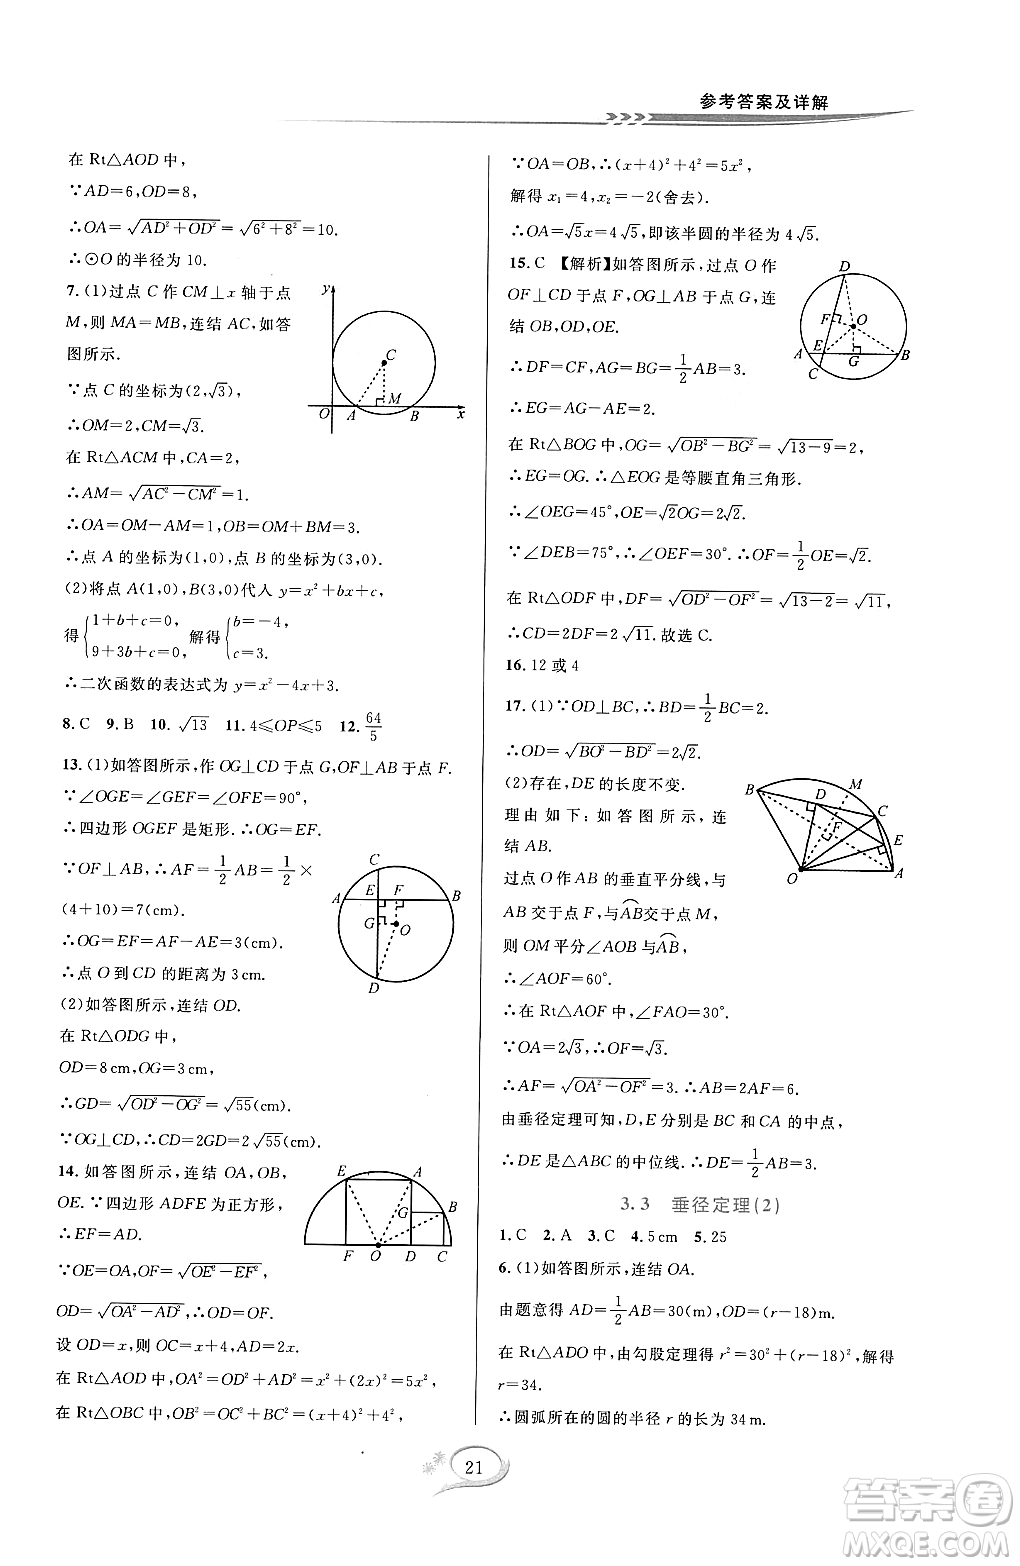 参考答案及详解
在 Rt△AOD 中，
∵AD=6,OD=8，
∴OA=√(AD²+OD²)=√(6²+8²)=10.
∴⊙O 的半径为 10.
7.(1)过点 C 作 CM⊥x 轴于点
M,则 MA=MB,连结 AC,如答
图所示.
∵点 C 的坐标为(2,√3)，
∴OM=2,CM=√3.
在 Rt△ACM 中,CA=2，
∴AM=√(AC²-CM²)=1.
∴OA=OM-AM=1,OB=OM+BM=3.
∴点 A 的坐标为(1,0),点 B 的坐标为(3,0).
(2)将点 A(1,0),B(3,0)代入 y=x²+bx+c，
得{1+b+c=0, 9+3b+c=0, 解得{b=-4, c=3.
∴二次函数的表达式为 y=x²-4x+3.
8.C 9.B 10.√13 11.4≤OP≤5 12.64/5
13.(1)如答图所示,作 OG⊥CD 于点 G,OF⊥AB 于点 F.
∵∠OGE=∠GEF=∠OFE=90°，
∴四边形 OGEF 是矩形.∴OG=EF.
∵OF⊥AB,∴AF=1/2AB=1/2×
(4+10)=7(cm).
∴OG=EF=AF-AE=3(cm).
∴点 O 到 CD 的距离为 3 cm.
(2)如答图所示,连结 OD.
在 Rt△ODG 中，
OD=8 cm,OG=3 cm，
∴GD=√(OD²-OG²)=√55(cm).
∵OG⊥CD,∴CD=2GD=2√55(cm).
14.如答图所示,连结 OA,OB，
OE.∵四边形 ADFE 为正方形，
∴EF=AD.
∵OE=OA,OF=√(OE²-EF²)，
OD=√(OA²-AD²),∴OD=OF.
设 OD=x,则 OC=x+4,AD=2x.
在 Rt△AOD 中,OA²=OD²+AD²=x²+(2x)²=5x²，
在 Rt△OBC 中,OB²=OC²+BC²=(x+4)²+4²，
y
C
O
A
M
B
x
C
A
E
F
B
G
O
D
E
A
G
B
F
O
D
C
∵OA=OB,∴(x+4)²+4²=5x²，
解得 x₁=4,x₂=-2(舍去).
∴OA=√5x=4√5,即该半圆的半径为 4√5.
15.C 【解析】如答图所示,过点 O 作
OF⊥CD 于点 F,OG⊥AB 于点 G,连
结 OB,OD,OE.
∴DF=CF,AG=BG=1/2AB=3.
∴EG=AG-AE=2.
在 Rt△BOG 中,OG=√(OB²-BG²)=√(13-9)=2，
∴EG=OG.∴△EOG 是等腰直角三角形.
∴∠OEG=45°,OE=√2OG=2√2.
∵∠DEB=75°,∴∠OEF=30°.∴OF=1/2OE=√2.
在 Rt△ODF 中,DF=√(OD²-OF²)=√(13-2)=√11，
∴CD=2DF=2√11.故选 C.
16.12 或 4
17.(1)∵OD⊥BC,∴BD=1/2BC=2.
∴OD=√(BO²-BD²)=2√2.
(2)存在,DE 的长度不变.
理由如下:如答图所示,连
结 AB.
过点 O 作 AB 的垂直平分线,与
AB 交于点 F,与AB交于点 M，
则 OM 平分∠AOB 与AB，
∴∠AOF=60°.
∴在 Rt△AOF 中,∠FAO=30°.
∵OA=2√3,∴OF=√3.
∴AF=√(OA²-OF²)=3.∴AB=2AF=6.
由垂径定理可知,D,E 分别是 BC 和 CA 的中点，
∴DE 是△ABC 的中位线.∴DE=1/2AB=3.
D
F
O
A
E
G
B
C
B
D
M
C
F
E
O
A
3.3 垂径定理(2)
1.C 2.A 3.C 4.5 cm 5.25
6.(1)如答图所示,连结 OA.
由题意得 AD=1/2AB=30(m),OD=(r-18)m.
在 Rt△ADO 中,由勾股定理得 r²=30²+(r-18)²,解得
r=34.
∴圆弧所在的圆的半径 r 的长为 34 m.
21
答案圈
MXQE.COM